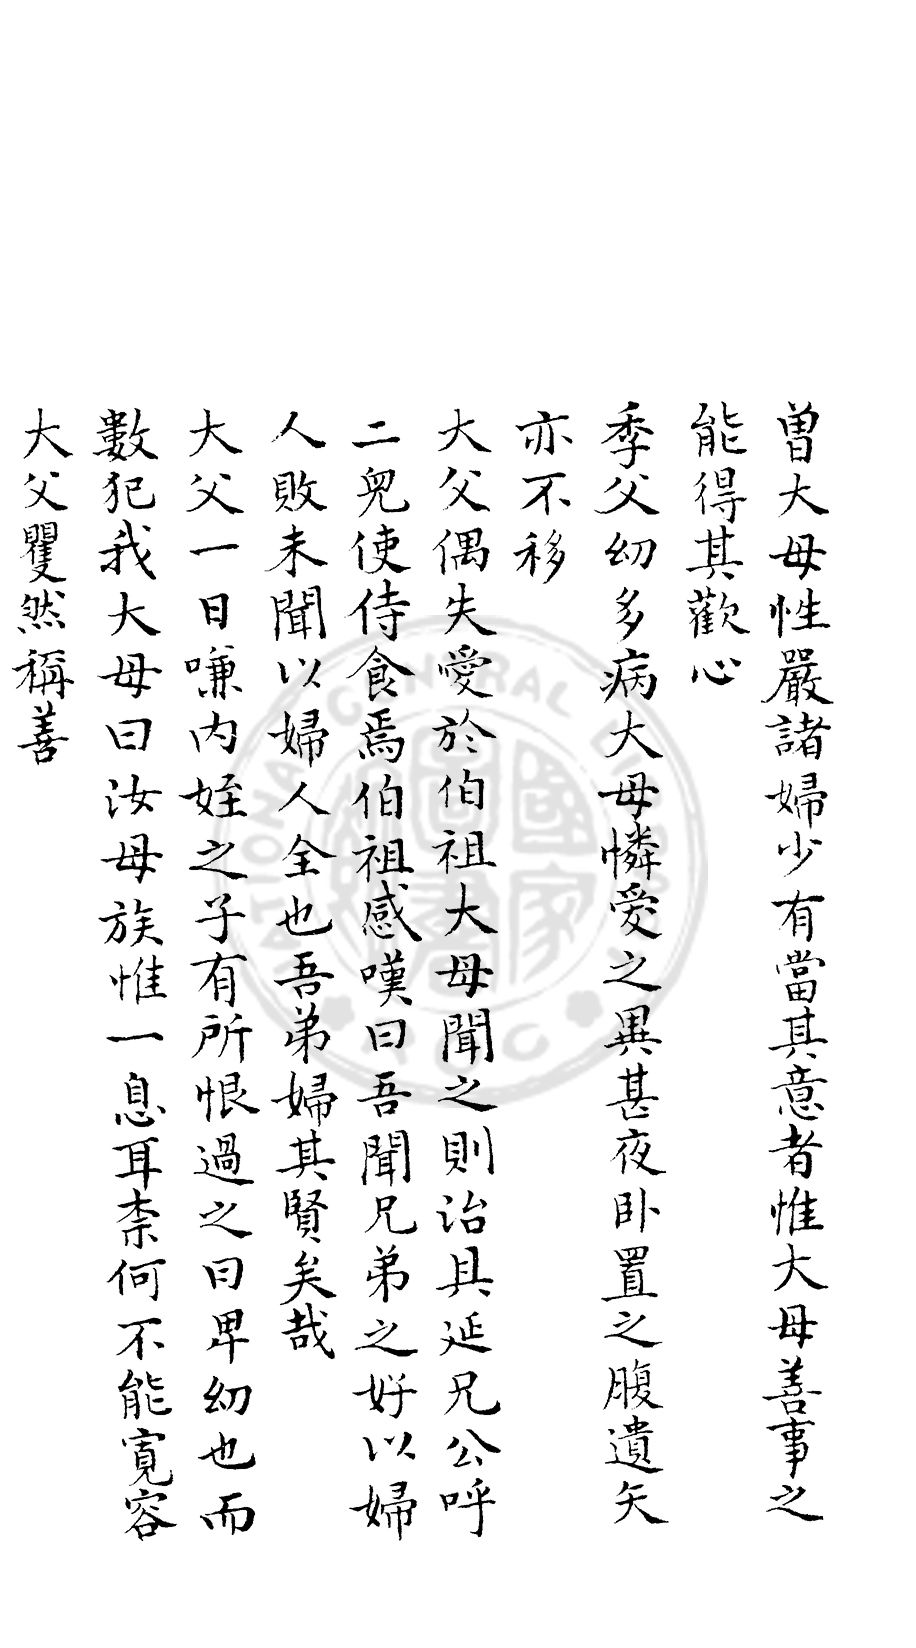 曽大母性嚴諸婦少有當其意者惟大母善事之
能得其歡心
季父幼多病大母憐愛之異甚夜卧置之腹遺矢
亦不移
大父偶失愛於伯祖大母聞之則治具延兄公呼
二兒使侍食焉伯祖感嘆曰吾聞兄弟之好以婦
人敗未聞以婦人全也吾弟婦其賢矣哉
大父一日嗛内姪之子有所恨過之曰卑幼也而
數犯我大母曰汝母族惟一息耳柰何不能寛容
大父瞿然稱善
NATIONAL CENTRAL LIBRARY
國家圖書館